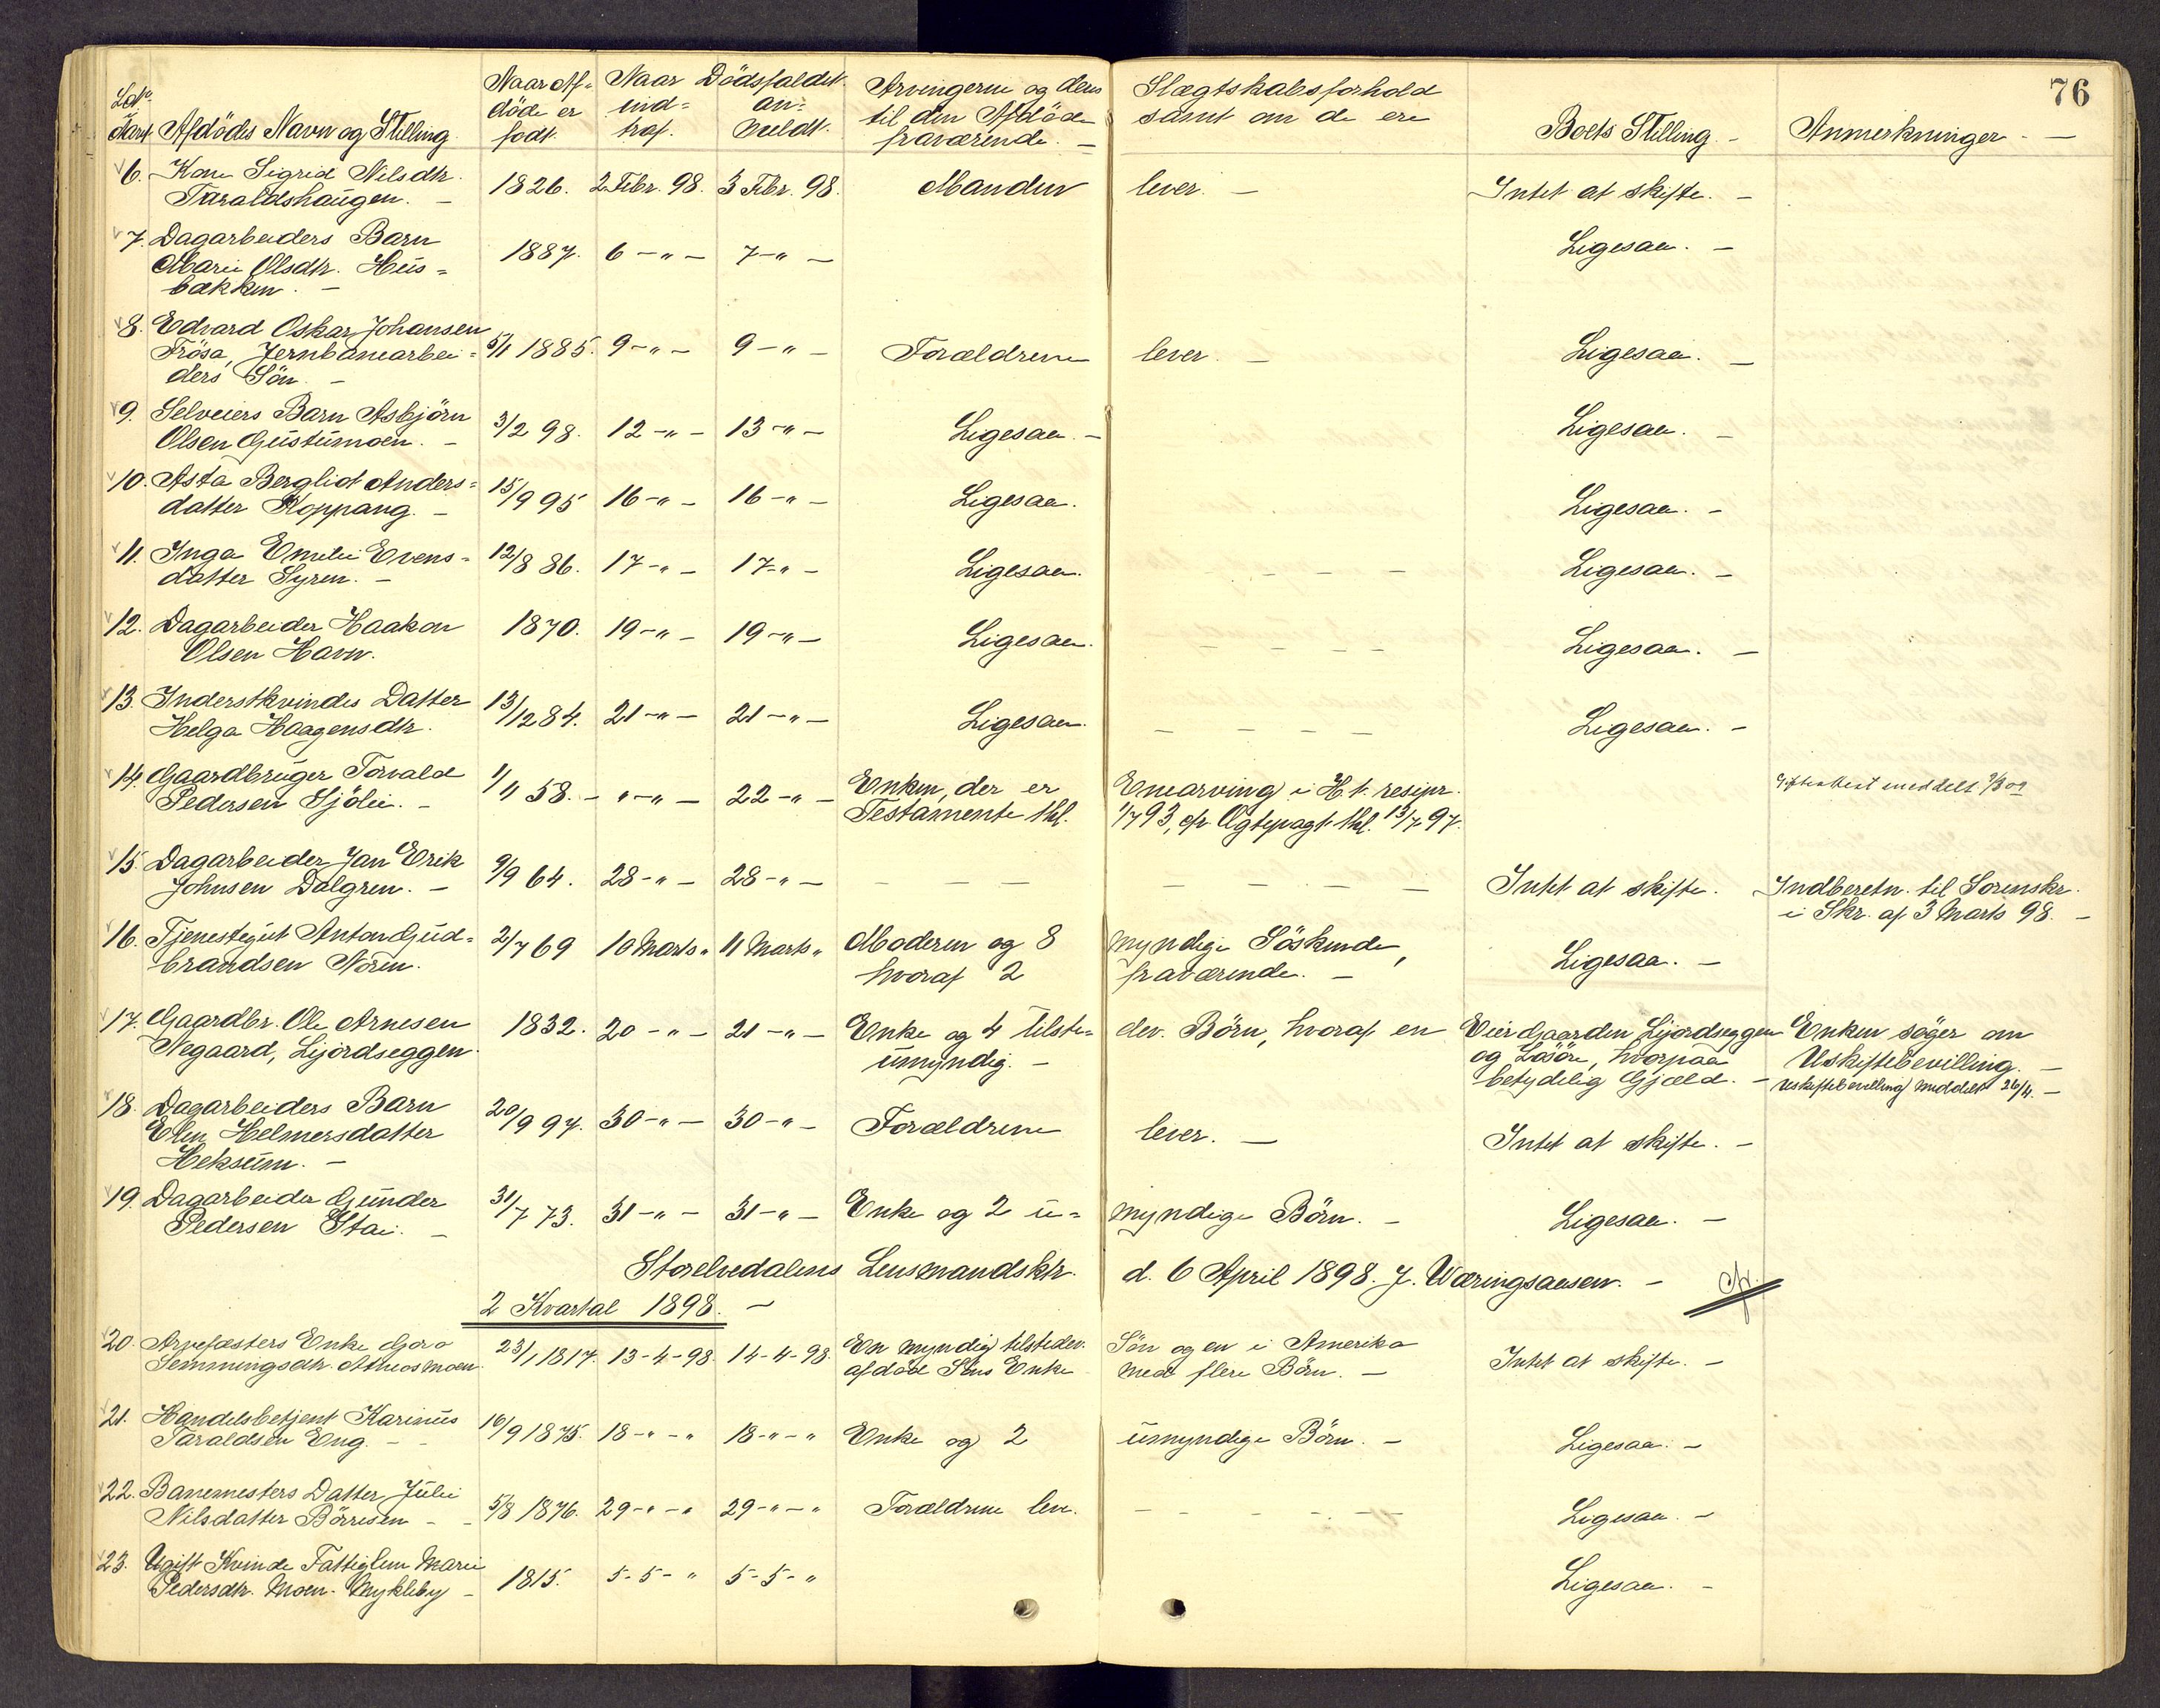 76
Naar Af- Naar Dödsfaldet Arvingerne og deres Slægtskabsforhold
döde er ind- an- til den Afdöde samt om de ere
Afdödes Navn og Stilling födt. traf. meldt. fraværende. — Boets Stilling. — Anmerkninger. —
6. Kone Sigrid Nilsdtr. 1826. 2 Febr. 98. 3 Febr. 98. Manden lever. — Intet at skifte. —
Taraldshaugen. —
7. Dagarbeiders Barn 1887. 6 -"- 7 -"- Ligesaa. —
Marie Olsdtr. Hus-
bækken. —
8. Edvard Oskar Johansen
Frösa, Jernbanearbei- 5/1 1885. 9 -"- 9 -"- Forældrene lever. — Ligesaa. —
ders Sön. —
9. Selveiers Barn Asbjörn 3/2 98. 12 -"- 13 -"- Ligesaa. — Ligesaa. —
Olsen Gustumoen. —
10. Asta Bergliot Anders- 15/9 95 16 -"- 16 -"- Ligesaa. Ligesaa. —
datter Koppang. —
11. Inga Emilie Evens- 12/8 86. 17 -"- 17 -"- Ligesaa. — — — — Ligesaa. —
datter Syren. —
12. Dagarbeider Haakon 1870. 19 -"- 19 -"- Ligesaa. — — — — Ligesaa. —
Olsen Havn.
13. Inderstkvindes Datter 13/12 84. 21 -"- 21 -"- Ligesaa. — — — — Ligesaa. —
Helga Haagensdtr.
14. Gaardbruger Torvald 1/1 58. - "-"- 22 -"- Enken, der er Enearving i H. t. resipr.
Pedersen Sjölie. — Testamente thl. 1/7 93, cfr Ægtepagt thl. 13/7 97.
15. Dagarbeider Jan Erik 9/9 64. 28 -"- 28 -"- — — — — — — — Intet at skifte. Indberetn. til Sorenskr.
Johnsen Dalgren. — i Skr. af 3 Marts 98. —
16. Tjenestegut Anton Gud- 2/7 69 10 Marts " 11 Marts " Moderen og 8 myndige Söskende, Ligesaa. —
brandsen Noren. hvoraf 2 fraværende. —
17. Gaardbr. Ole Arnesen 1832. 20 -"- 21 -"- Enke og 4 tilste- dev. Börn, hvoraf en Eier Gaarden Lijordseggen Enken söger om
Negaard, Lijordseggen. umyndig. — og Lösöre, hvorpaa Uskiftebevilling. —
betydelig Gjæld. — Uskiftebevilling meddelt 26/4. —
18. Dagarbeiders Barn 20/9 97. 30 -"- 30 -"- Forældrene lever. — Intet at skifte. —
Elen Helmersdatter
Heksum. —
19. Dagarbeider Gunder 31/7 73. 31 -"- 31 -"- Enke og 2 u- myndige Börn. — Ligesaa. —
Pedersen Stai. —
Storelvedalens Lensmandsktr. d. 6 April 1898. J. Wæringsaasen. —
2 Kvartal 1898. —
20. Arvefæsters Enke Goro 23/1 1817. 13-4-98. 14-4-98. En myndig tilstedev. Sön og en i Amerika Intet at skifte. —
Semmingsdtr. afdöd Söns Enke med flere Börn. —
21. Handelsbetjent Karinus 16/9 1875. 18-"-" 18-"-" Enke og 2 umyndige Börn. — Ligesaa. —
Taraldsen Eng. —
22. Banemesters Datter Julie 5/8 1876. 29-"-" 29-"-" Forældrene lever. — — — — — Ligesaa. —
Nilsdatter Börresen —
23. Ugift Kvinde Fattiglem Marie 1815. 5-5-" 5-5-" Ligesaa. —
Pedersdtr. Moen-Mykleby —